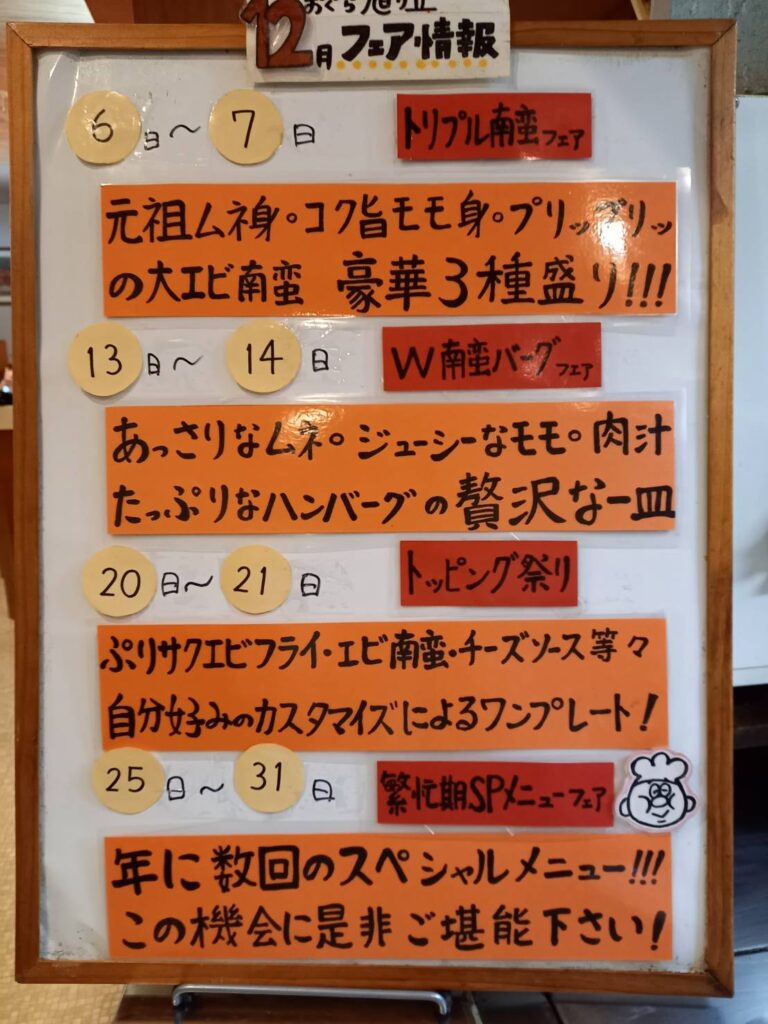 おぐら旭ヶ丘
12月フェア情報
6日～7日 トリプル南蛮フェア
元祖ムネ身。コク旨モモ身。プリップリッ
の大エビ南蛮 豪華3種盛り!!!
13日～14日 W南蛮バーグフェア
あっさりなムネ。ジューシーなモモ。肉汁
たっぷりなハンバーグの贅沢な一皿
20日～21日 トッピング祭り
ぷりサクエビフライ・エビ南蛮・チーズソース等々
自分好みのカスタマイズによるワンプレート!
25日～31日 繁忙期SPメニューフェア
年に数回のスペシャルメニュー!!!
この機会に是非ご堪能下さい!